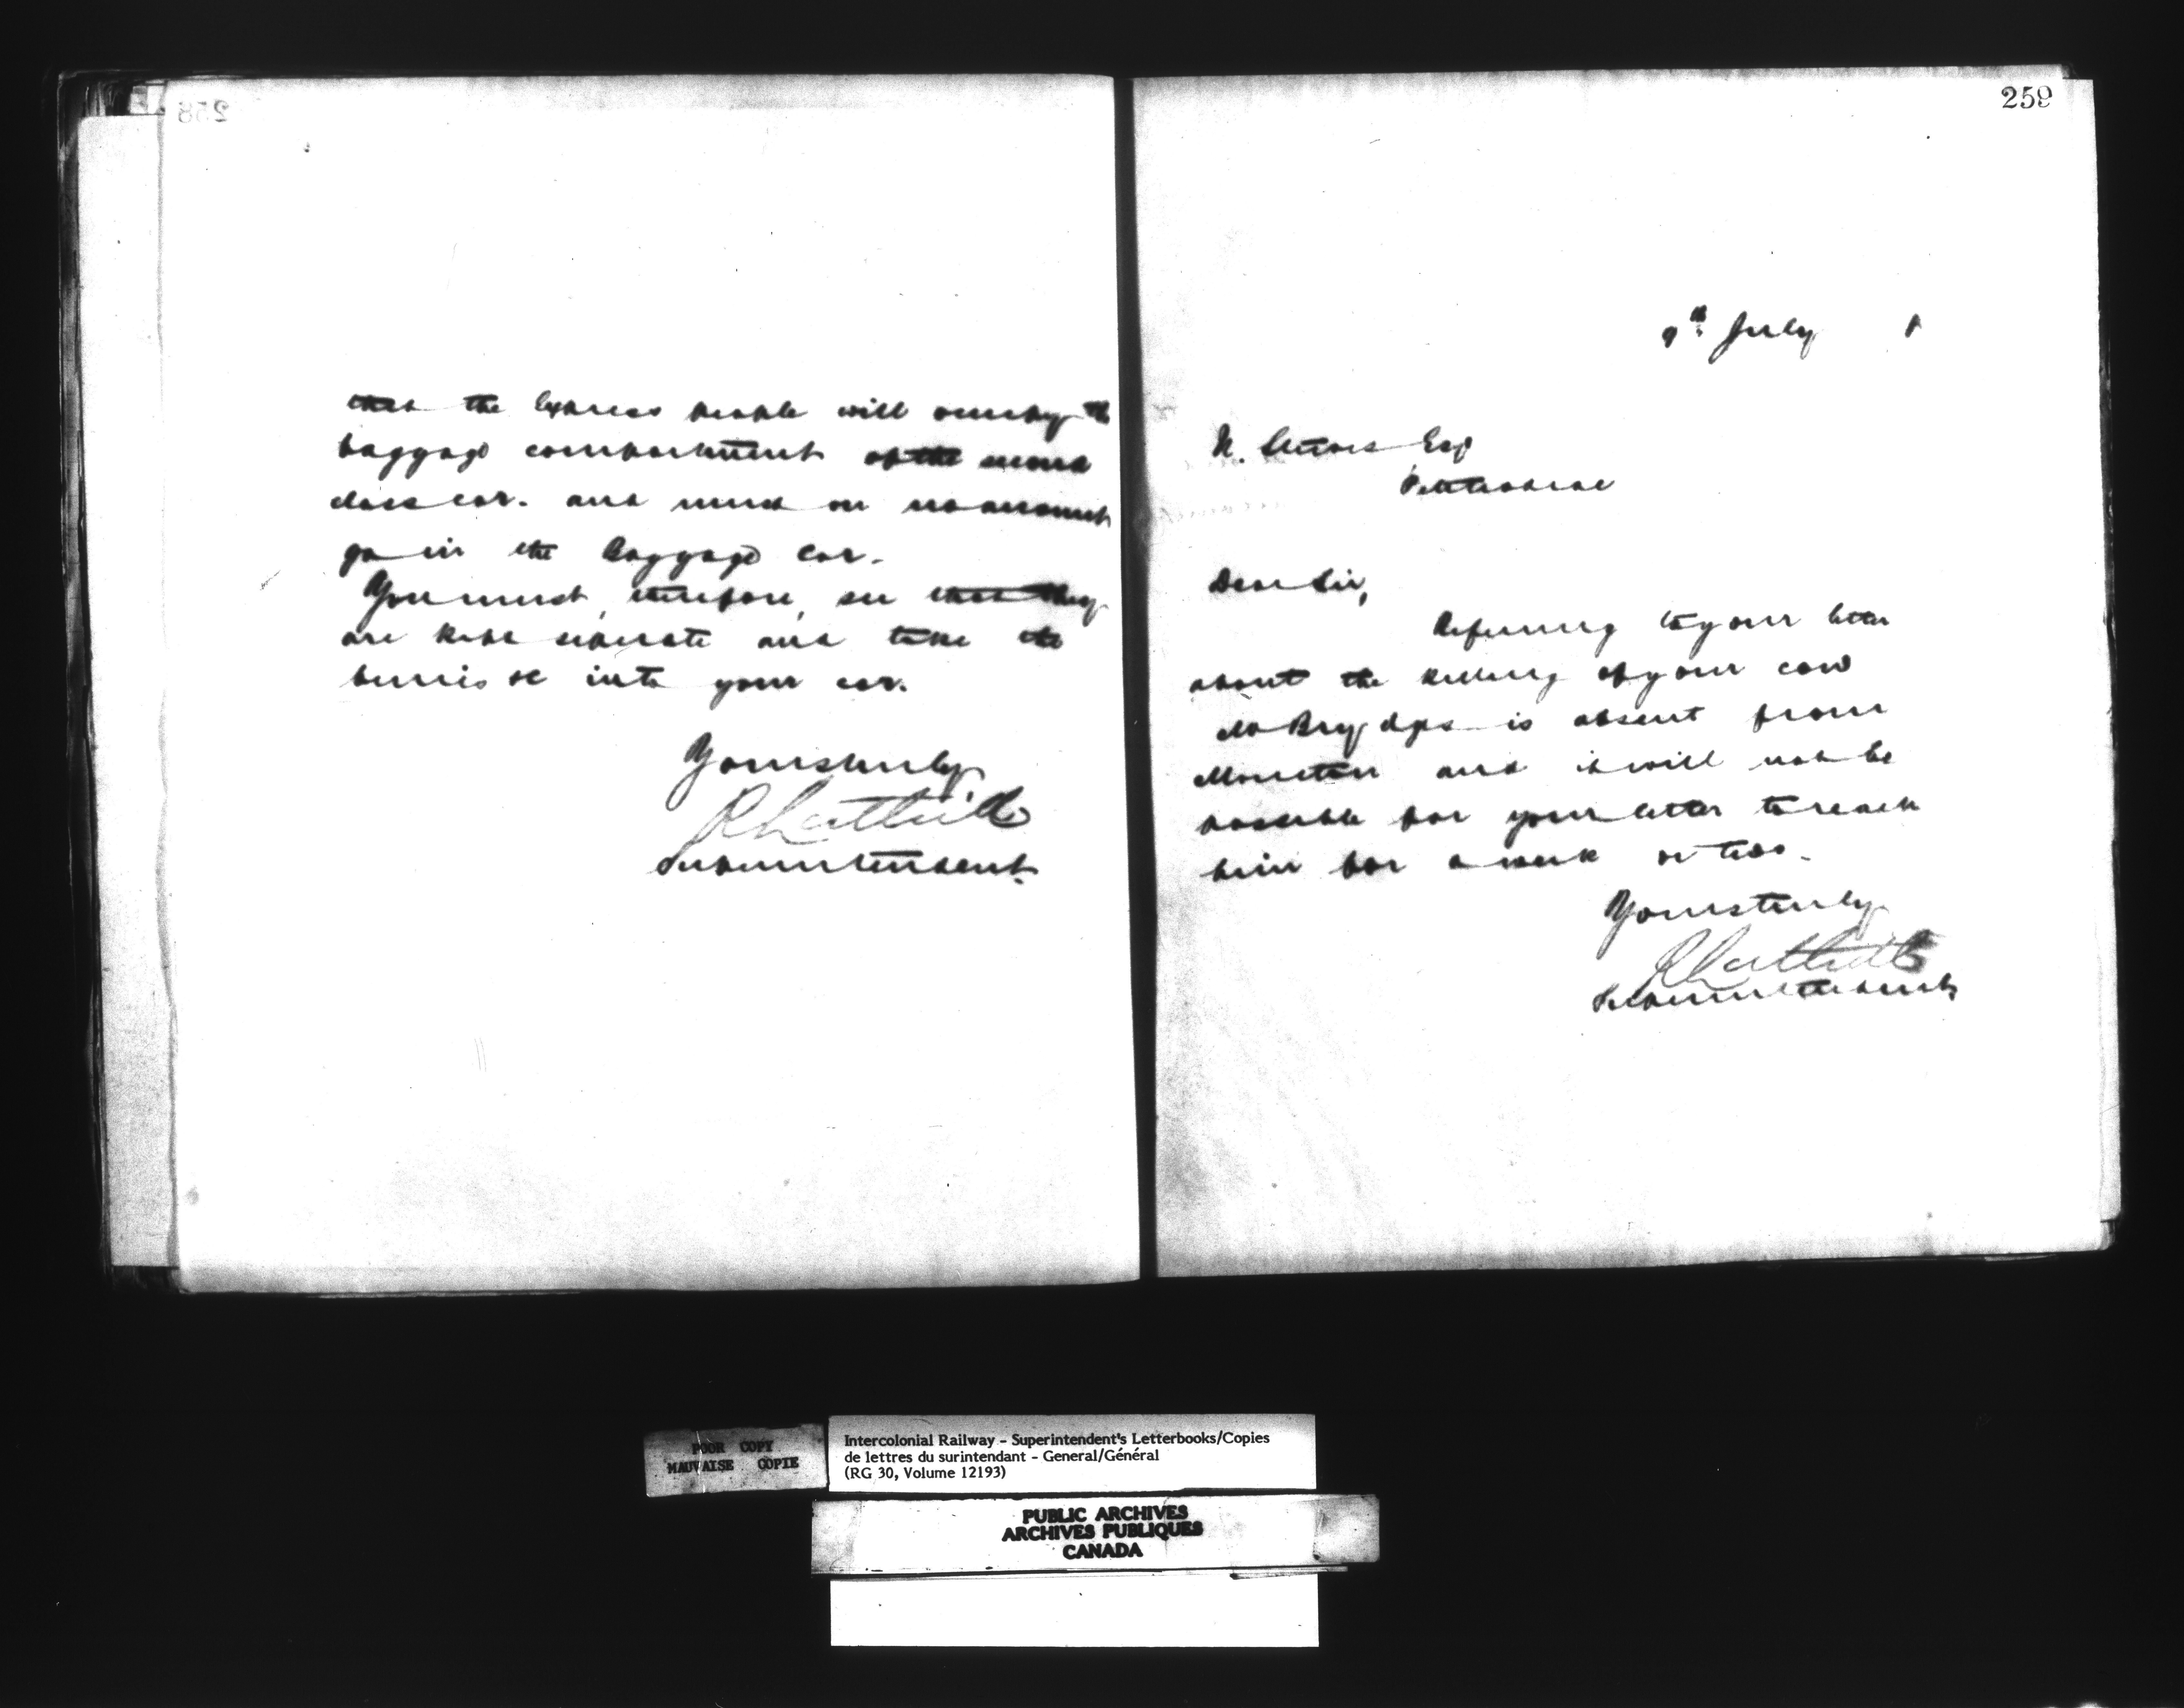 258
that the Express people will occupy the
baggage compartment of the second
class car. and must on no account
go in the baggage car.
You must, therefore, see that they
are kept separate and take the
business into your car.
Yours truly
R Luttrell
Superintendent
259
9th July 1
N. Esq
Petitcodiac
Dear Sir,
Referring to your letter
about the killing of your cow
Mr Brydges is absent from
Moncton and it will not be
possible for your letter to reach
him for a week or two.
Yours truly
R Luttrell
Superintendent
POOR COPY
MAUVAISE COPIE
Intercolonial Railway - Superintendent's Letterbooks/Copies
de lettres du surintendant - General/Général
(RG 30, Volume 12193)
PUBLIC ARCHIVES
ARCHIVES PUBLIQUES
CANADA